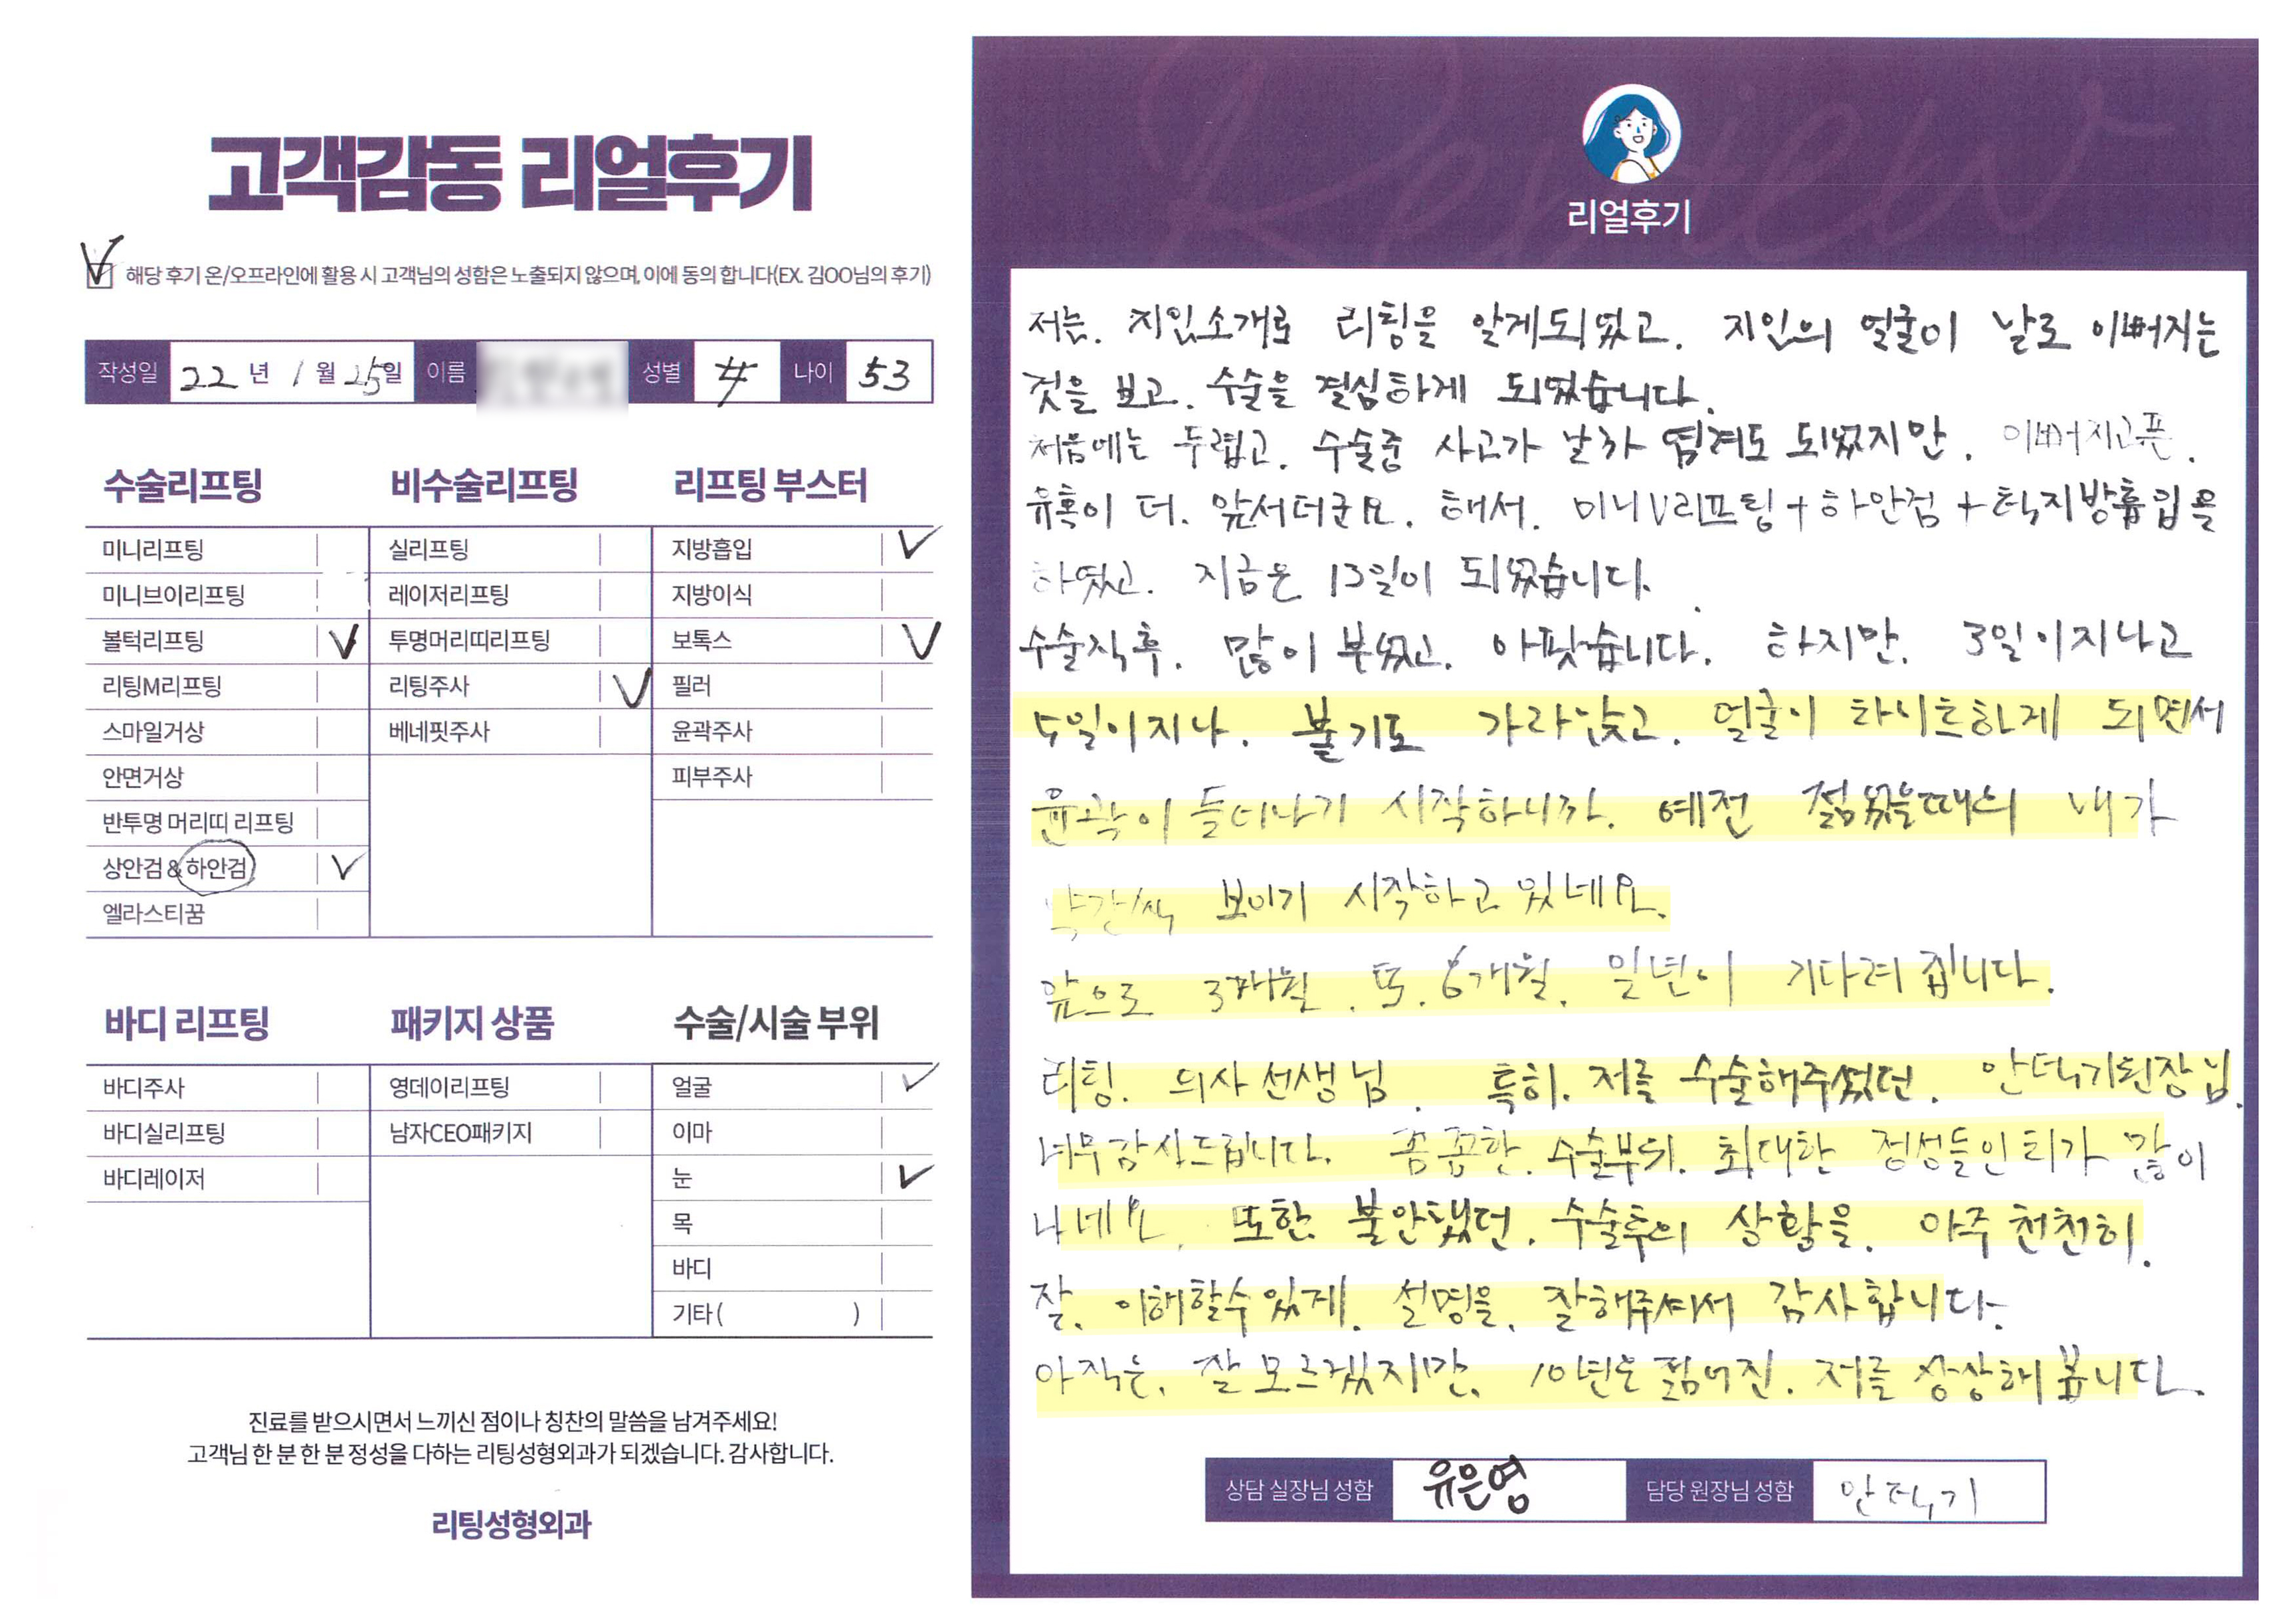 고객감동 리얼후기
해당 후기 온/오프라인에 활용 시 고객님의 성함은 노출되지 않으며, 이에 동의 합니다(EX. 김OO님의 후기)
작성일 22 년 1 월 25일 이름 성별 女 나이 53
수술리프팅
미니리프팅
미니브이리프팅
볼턱리프팅 V
리팅M리프팅
스마일거상
안면거상
반투명 머리띠 리프팅
상안검 & 하안검 V
엘라스티꿈
비수술리프팅
실리프팅
레이저리프팅
투명머리띠리프팅
리팅주사 V
베네핏주사
리프팅 부스터
지방흡입 V
지방이식
보톡스 V
필러
윤곽주사
피부주사
바디 리프팅
바디주사
바디실리프팅
바디레이저
패키지 상품
영데이리프팅
남자CEO패키지
수술/시술 부위
얼굴 V
이마
눈 V
목
바디
기타( )
진료를 받으시면서 느끼신 점이나 칭찬의 말씀을 남겨주세요!
고객님 한 분 한 분 정성을 다하는 리팅성형외과가 되겠습니다. 감사합니다.
리팅성형외과
Review
리얼후기
저는. 지인소개로 리팅을 알게되었고. 지인의 얼굴이 날로 이뻐지는
것을 보고. 수술을 결심하게 되었습니다.
처음에는 두렵고. 수술중 사고가 날까 염려도 되었지만. 이뻐지고픈.
유혹이 더. 앞서더군요. 해서. 미니V리프팅+하안검+턱지방흡입을
하였고. 지금은 13일이 되었습니다.
수술직후. 많이 부었고. 아팟습니다. 하지만. 3일이지나고
5일이지나. 붓기도 가라앉고. 얼굴이 하나하나 되면서
윤곽이 들어나기 시작하니까. 예전 젊었을때의 내가
약간씩 보이기 시작하고 있네요.
앞으로 3개월. 또. 6개월. 일년이 기다려 집니다.
리팅. 의사선생님. 특히. 저를 수술해주셨던. 안덕기원장님.
너무감사드립니다. 꼼꼼한. 수술부위. 최대한 정성들인 티가 많이
나네요. 또한. 불안했던. 수술후의 상황을. 아주 천천히.
잘. 이해할수있게. 설명을. 잘해주셔서 감사합니다.
아직은. 잘 모르겠지만. 10년은 젊어진. 저를 상상해 봅니다.
상담 실장님 성함 유은영 담당 원장님 성함 안덕기